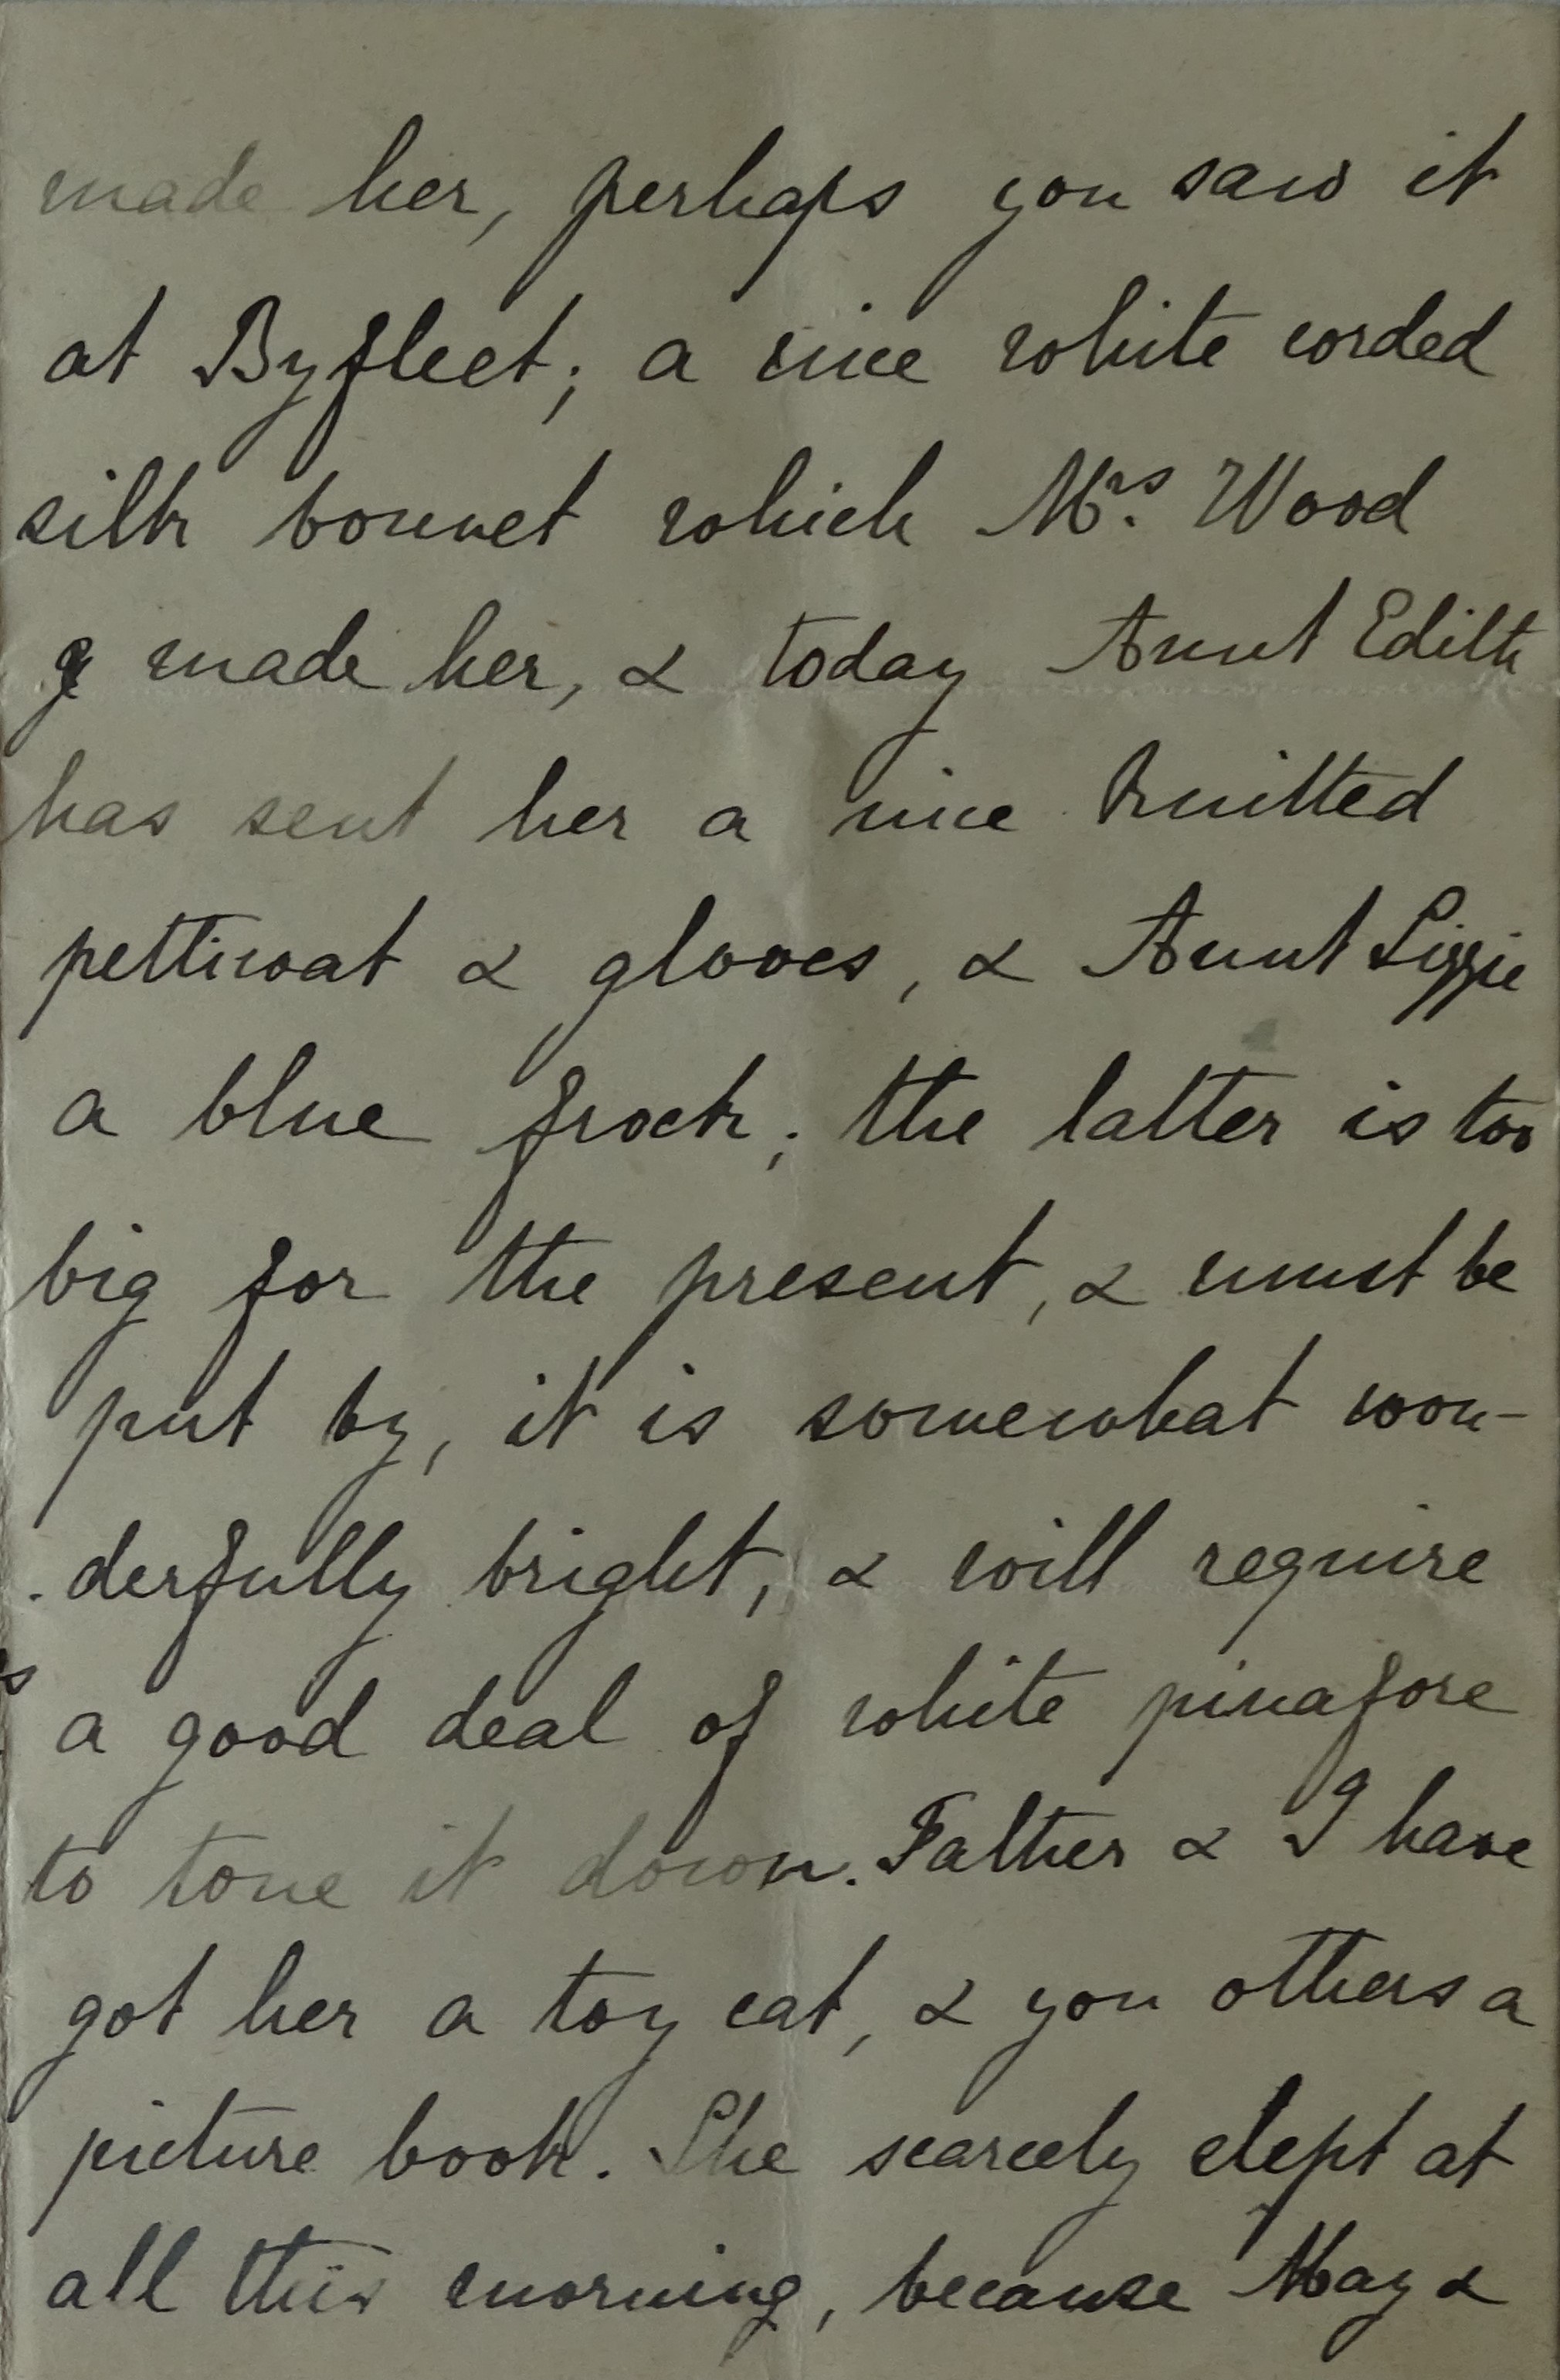 made her, perhaps you saw it
at Byfleet; a nice white corded
silk bonnet which Mrs. Wood
made her, & today Aunt Edith
has sent her a nice knitted
petticoat & gloves, & Aunt Lizzie
a blue frock; the latter is too
big for the present, & must be
put by, it is somewhat won-
derfully bright, & will require
a good deal of white pinafore
to tone it down. Father & I have
got her a toy cat, & you others a
picture book. She scarcely slept at
all this morning, because May &